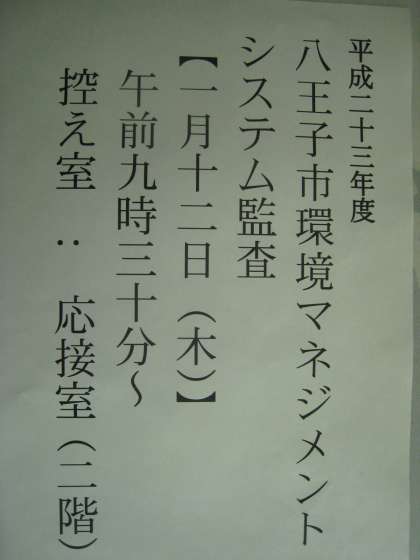 平成二十三年度
八王子市環境マネジメント
システム監査
【一月十二日（木）】
午前九時三十分～
控え室：応接室（二階）